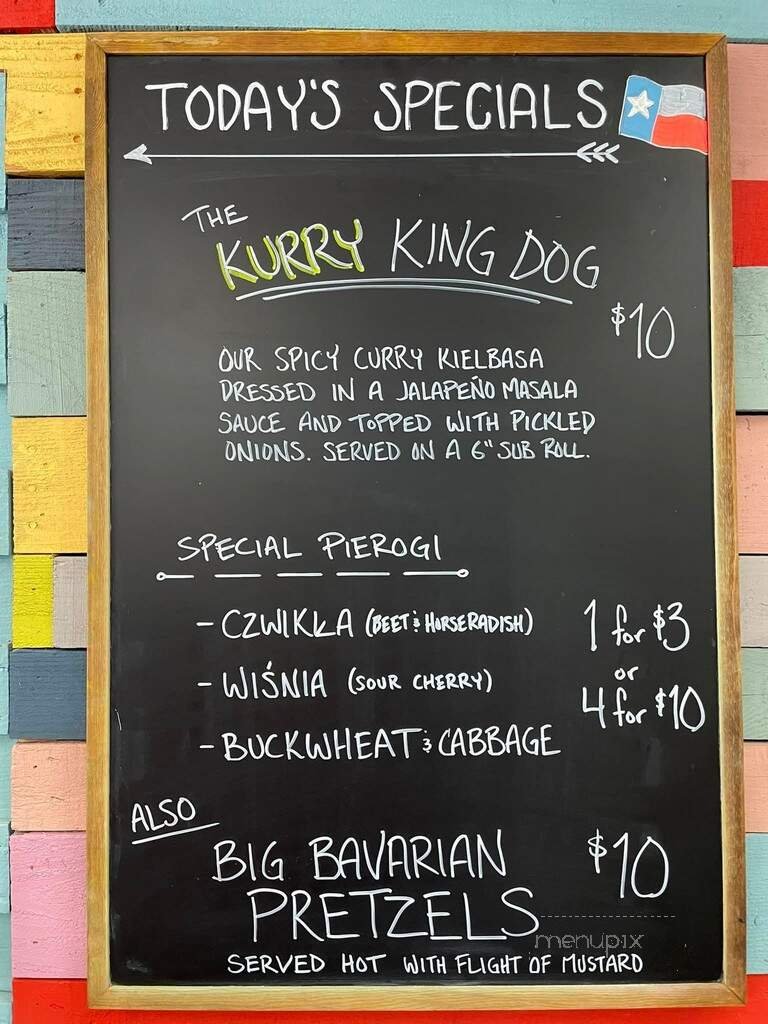 TODAY'S SPECIALS
THE
KURRY KING DOG
$10
OUR SPICY CURRY KIELBASA
DRESSED IN A JALAPEÑO MASALA
SAUCE AND TOPPED WITH PICKLED
ONIONS. SERVED ON A 6" SUB ROLL.
SPECIAL PIEROGI
- CZWIKŁA (BEET & HORSERADISH)
- WIŚNIA (SOUR CHERRY)
- BUCKWHEAT & CABBAGE
1 for $3
or
4 for $10
ALSO
BIG BAVARIAN
PRETZELS
$10
SERVED HOT WITH FLIGHT OF MUSTARD
menupix